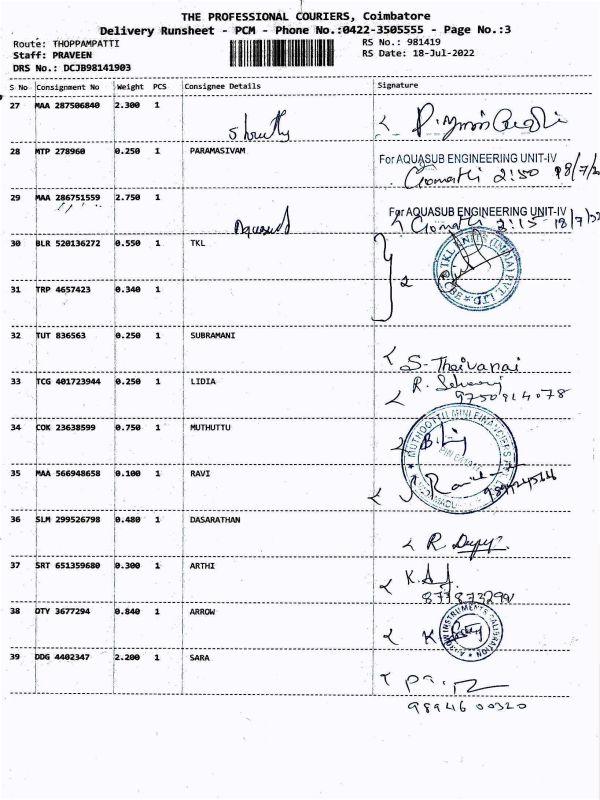 THE PROFESSIONAL COURIERS, Coimbatore
Delivery Runsheet - PCM - Phone No.:0422-3505555 - Page No.:3
Route: THOPPAMPATTI RS No.: 981419
Staff: PRAVEEN RS Date: 18-Jul-2022
DRS No.: DCJB98141903
S No Consignment No Weight PCS Consignee Details Signature
27 MAA 287506840 2.300 1
Shruthy
28 MTP 278960 0.250 1 PARAMASIVAM For AQUASUB ENGINEERING UNIT-IV
Gomathi 2:50 18/7/22
29 MAA 286751559 2.750 1 For AQUASUB ENGINEERING UNIT-IV
Aquasub Gomathi 2:15 18/7/22
30 BLR 520136272 0.550 1 TKL
31 TRP 4657423 0.340 1 2
32 TUT 836563 0.250 1 SUBRAMANI
S. Theivanai
33 TCG 401723944 0.250 1 LIDIA
9750914078
34 COK 23638599 0.750 1 MUTHUTTU
35 MAA 566948658 0.100 1 RAVI
36 SLM 299526798 0.480 1 DASARATHAN
37 SRT 651359680 0.300 1 ARTHI
38 OTY 3677294 0.840 1 ARROW
ARROW INSTRUMENTS CALIBRATION
39 DDG 4402347 2.200 1 SARA
98946 00320